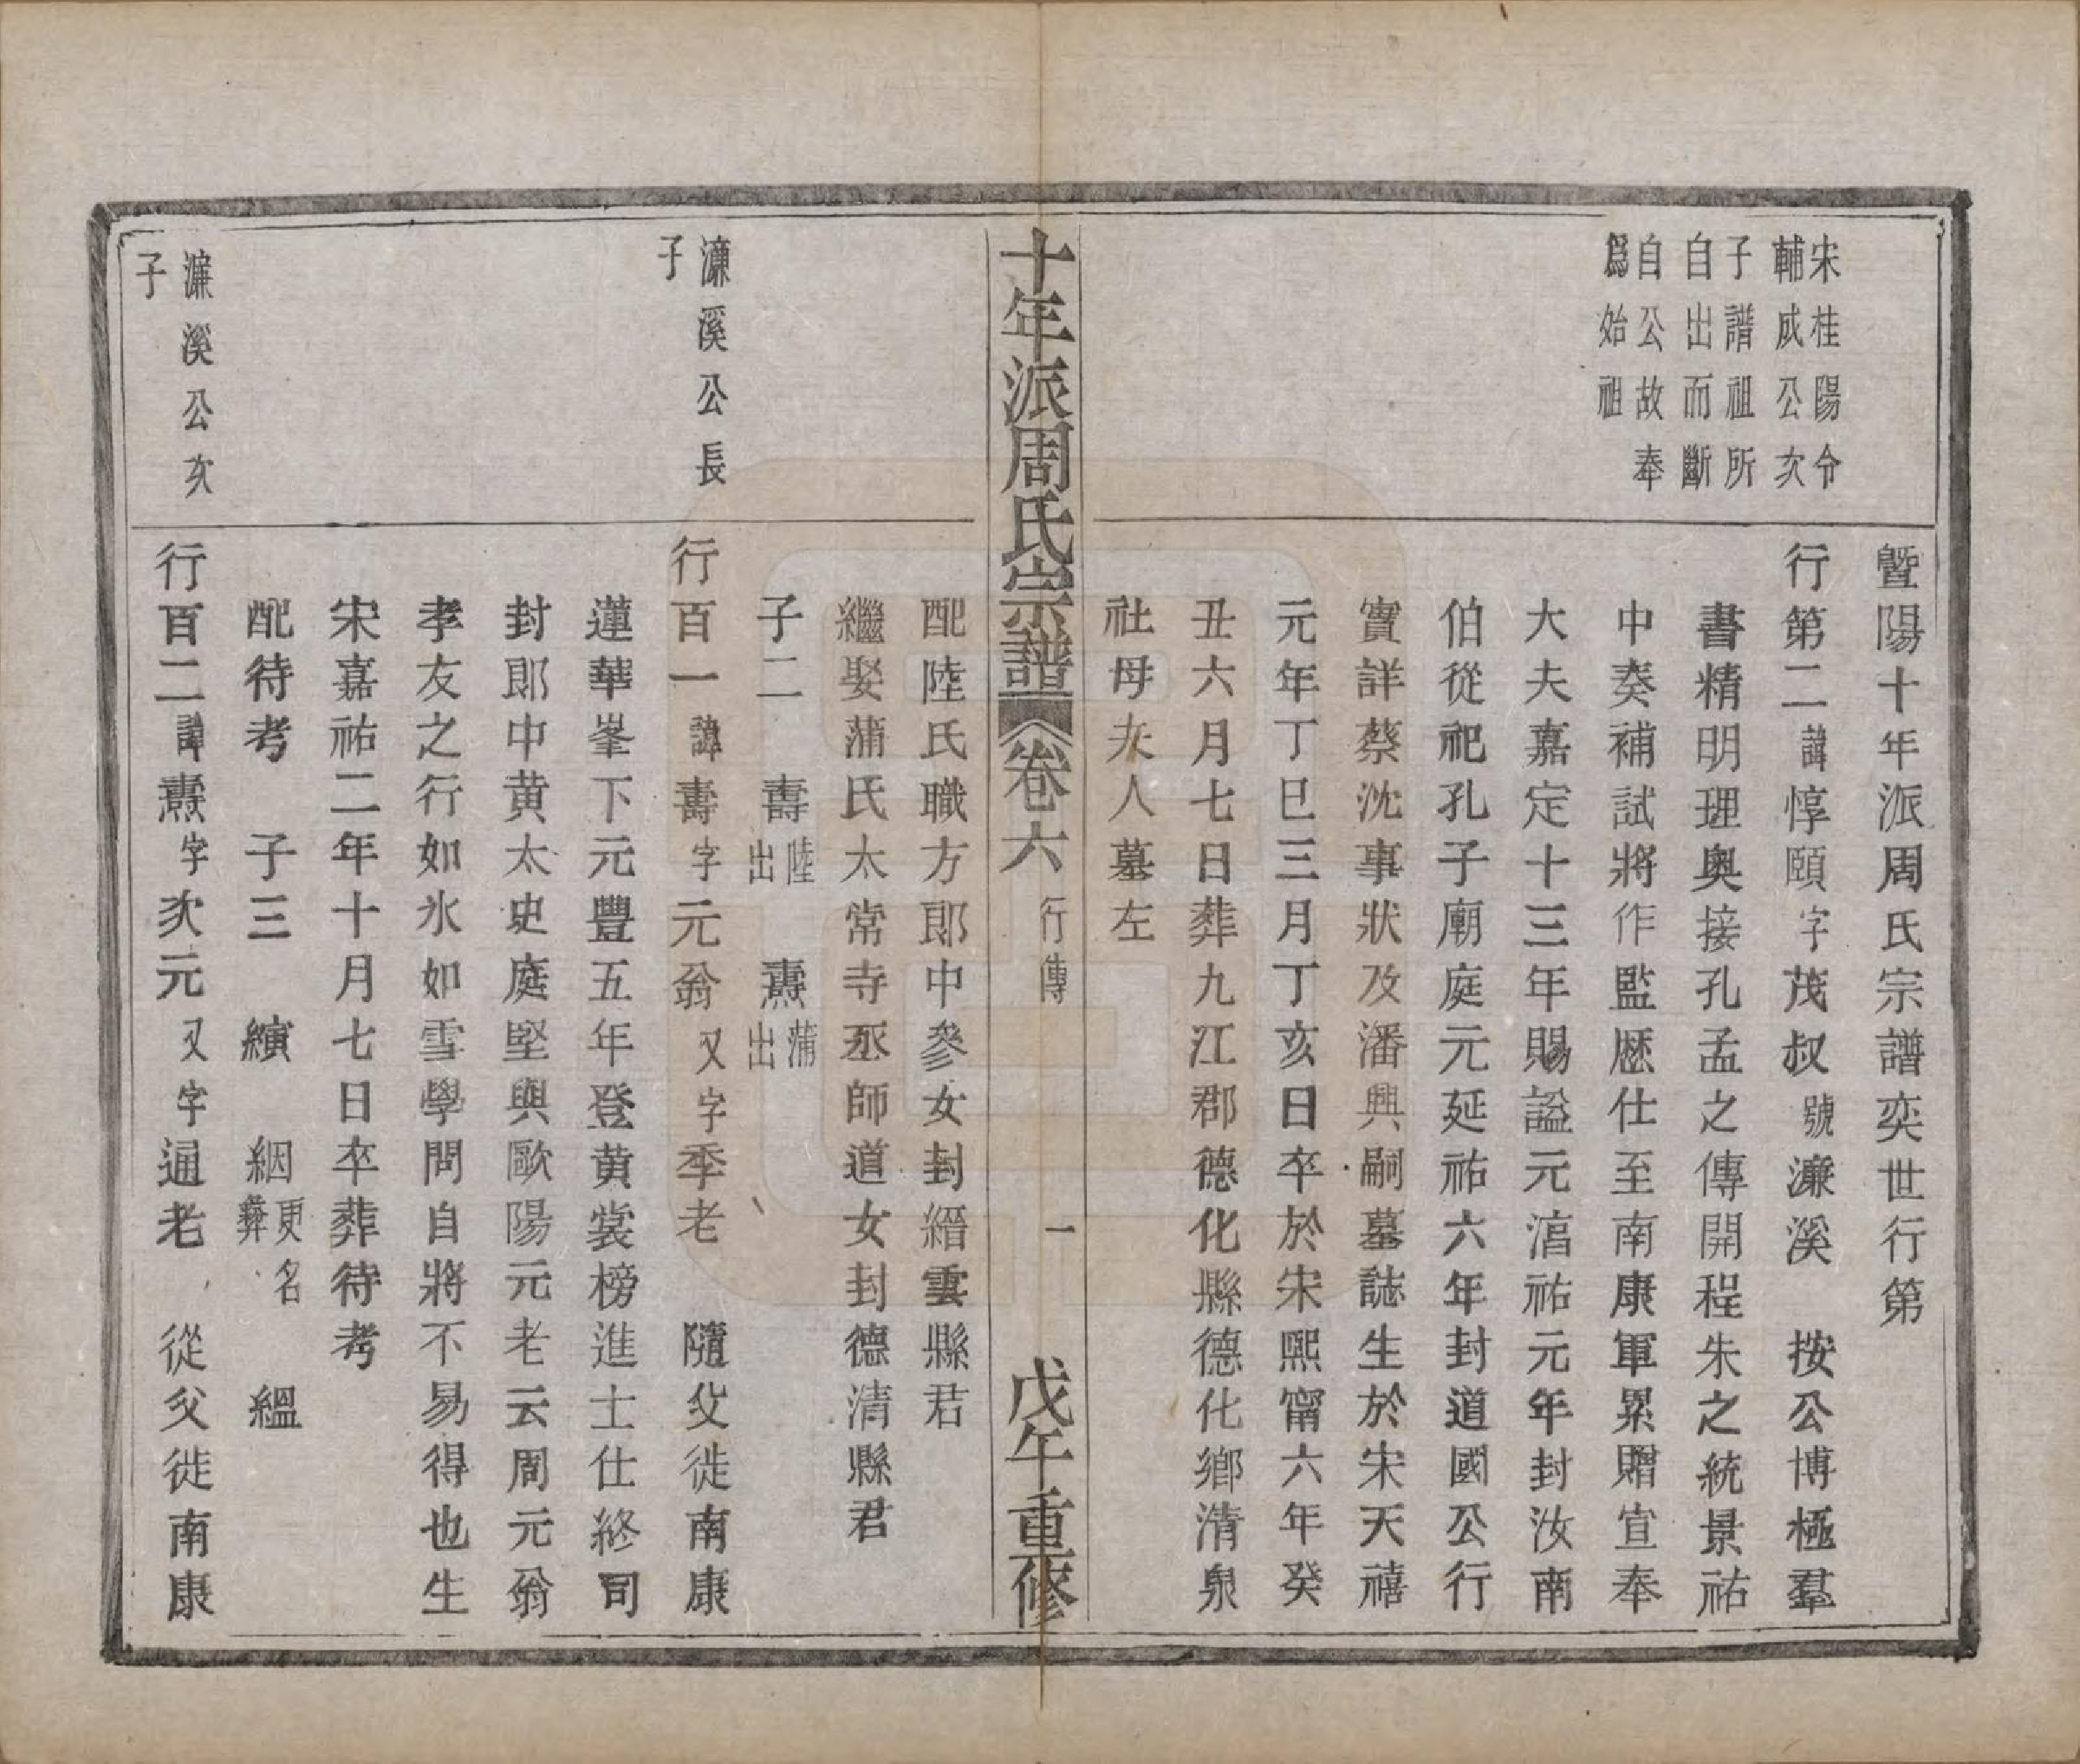 暨陽十年派周氏宗譜奕世行第
宋桂陽令
輔成公次
子譜祖所
自出而斷
自公故奉
爲始祖
行第二諱惇頤字茂叔號濂溪　按公博極羣
書精明理奧接孔孟之傳開程朱之統景祐
中奏補試將作監歷仕至南康軍累贈宣奉
大夫嘉定十三年賜謚元湻祐元年封汝南
伯從祀孔子廟庭元延祐六年封道國公行
實詳蔡沈事狀及潘興嗣墓誌生於宋天禧
元年丁巳三月丁亥日卒於宋熙甯六年癸
丑六月七日葬九江郡德化縣德化鄉清泉
社母夫人墓左
十年派周氏宗譜　卷六　行傳　一　戊午重修
配陸氏職方郎中參女封縉雲縣君
繼娶蒲氏太常寺丞師道女封德清縣君
子二　壽陸出　燾蒲出
濂溪公長
子
行百一諱壽字元翁又字季老　隨父徙南康
蓮華峯下元豐五年登黃裳榜進士仕終司
封郎中黃太史庭堅與歐陽元老云周元翁
孝友之行如氷如雪學問自將不易得也生
宋嘉祐二年十月七日卒葬待考
配待考　子三　繽　絪更名彝　縕
濂溪公次
子
行百二諱燾字次元又字通老　從父徙南康